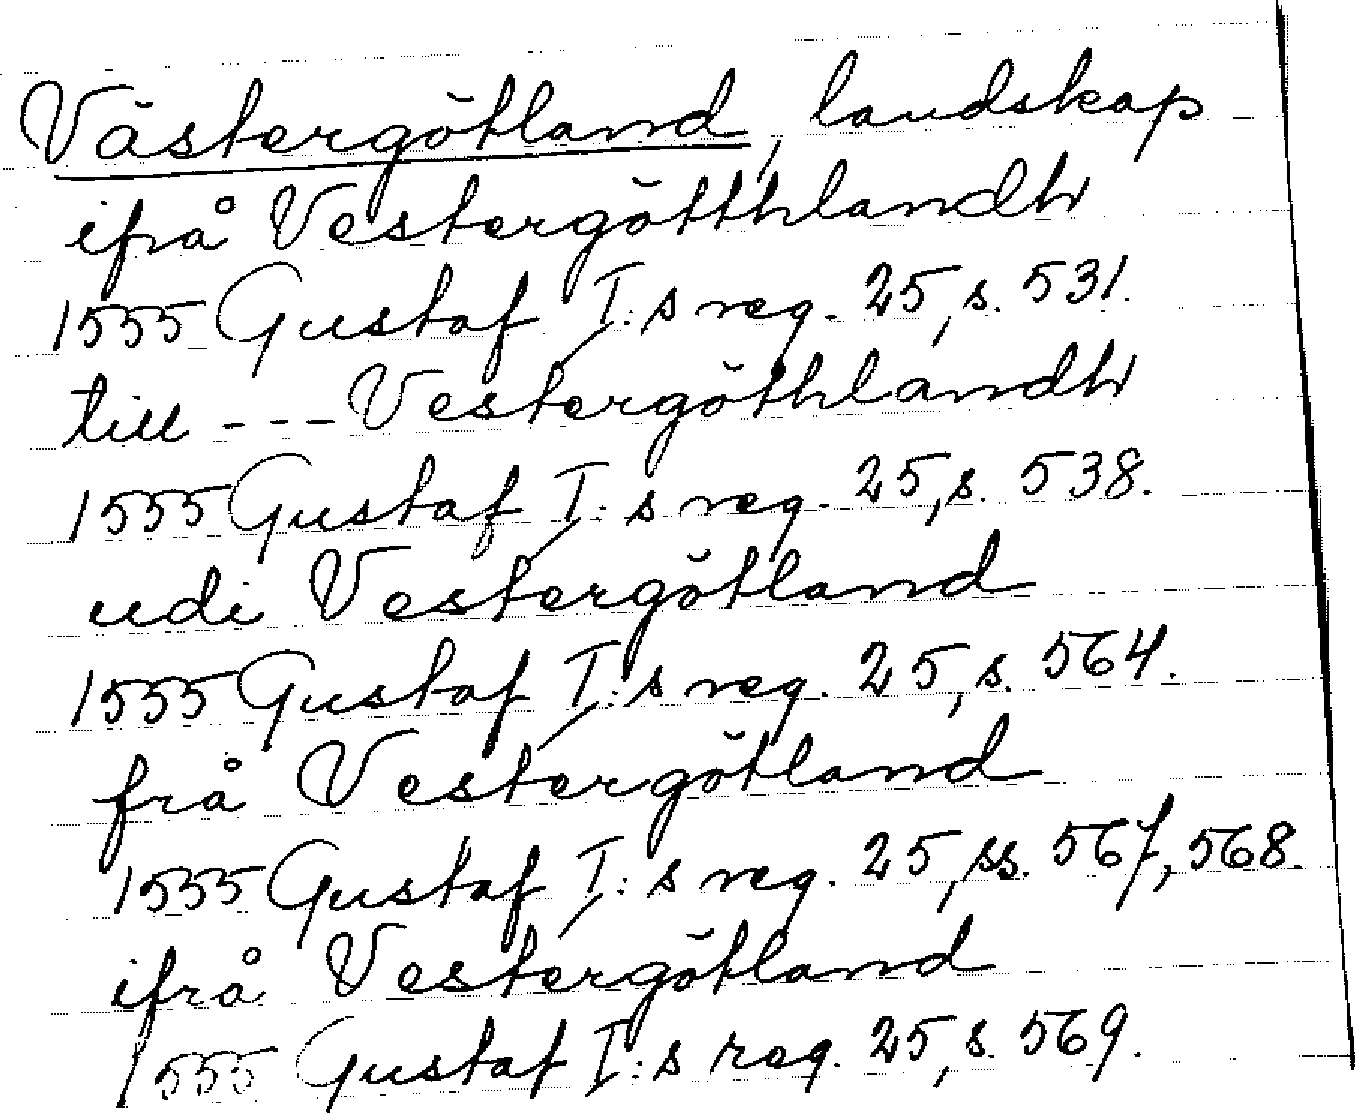 Västergötland, landskap
ifrå Vestergötthlandh
1555 Gustaf I:s reg. 25, s. 531.
till --- Vestergöthlandh
1555 Gustaf I:s reg. 25, s. 538.
udi Vestergötland
1555 Gustaf I:s reg. 25, s. 564.
frå Vestergötland
1555 Gustaf I:s reg. 25, ss. 567, 568.
ifrå Vestergötland
1555 Gustaf I:s reg. 25, s. 569.